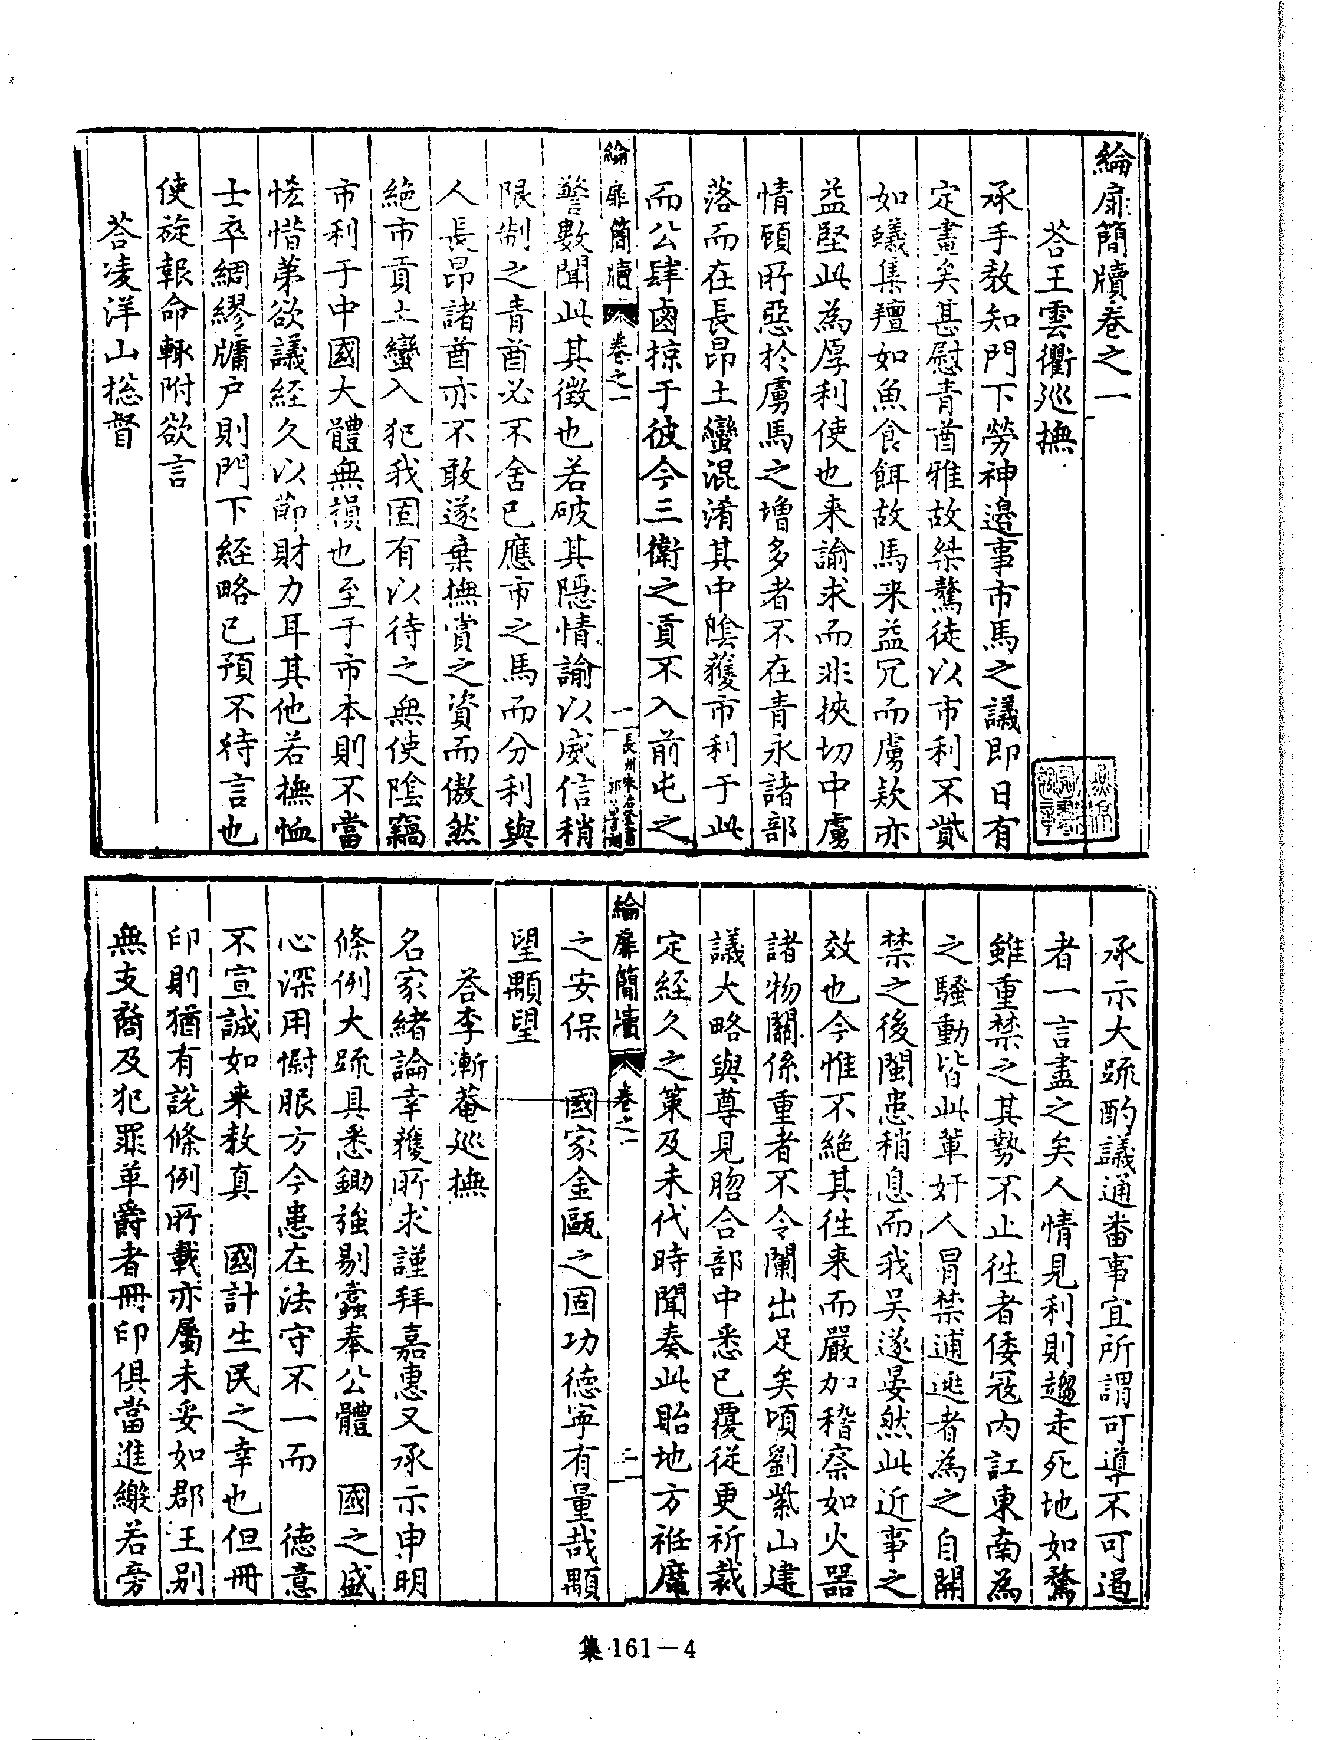 綸扉簡牘卷之一
荅王雲衢巡撫
承手教知門下勞神邊事市馬之議即日有
定畫矣甚慰青酋雅故桀驁徒以市利不貲
如蟻集羶如魚食餌故馬来益冗而虜欵亦
益堅此為厚利使也来諭求而非挾切中虜
情頋所惡於虜馬之增多者不在青永諸部
落而在長昂土蠻混淆其中陰獲市利于此
而公肆鹵掠于彼今三衛之貢不入前屯之
綸扉簡牘 卷之一 一
警數聞此其徴也若破其隱情諭以威信稍
限制之青酋必不舍已應市之馬而分利與
人長昂諸酋亦不敢遂棄撫賞之資而傲然
絶市貢土蠻入犯我固有以待之無使陰竊
市利于中國大體無損也至于市本則不當
恡惜苐欲議経久以節財力耳其他若撫恤
士卒綢繆牖户則門下経略已預不待言也
使旋報命輙附欲言
荅凌洋山揔督
承示大疏酌議通番事宜所謂可導不可遏
者一言盡之矣人情見利則趨走死地如騖
雖重禁之其勢不止徃者倭冦内訌東南為
之騷動皆此輩奸人冒禁逋逃者為之自開
禁之後閩患稍息而我吴遂晏然此近事之
效也今惟不絶其徃来而嚴加稽察如火器
諸物關係重者不令闌出足矣頃劉紫山建
議大略與尊見脗合部中悉已覆従更祈裁
定経久之策及未代時聞奏此貽地方袵席
綸扉簡牘 卷之一 二
之安保 國家金甌之固功德寜有量哉顒
望顒望
荅李漸菴巡撫
名家緒論幸獲所求謹拜嘉惠又承示申明
條例大疏具悉鋤強剔蠧奉公體 國之盛
心深用慰服方今患在法守不一而 徳意
不宣誠如来教真 國計生民之幸也但冊
印則猶有説條例所載亦屬未妥如郡王别
無支裔及犯罪革爵者冊印俱當進繳若旁
集 161－4